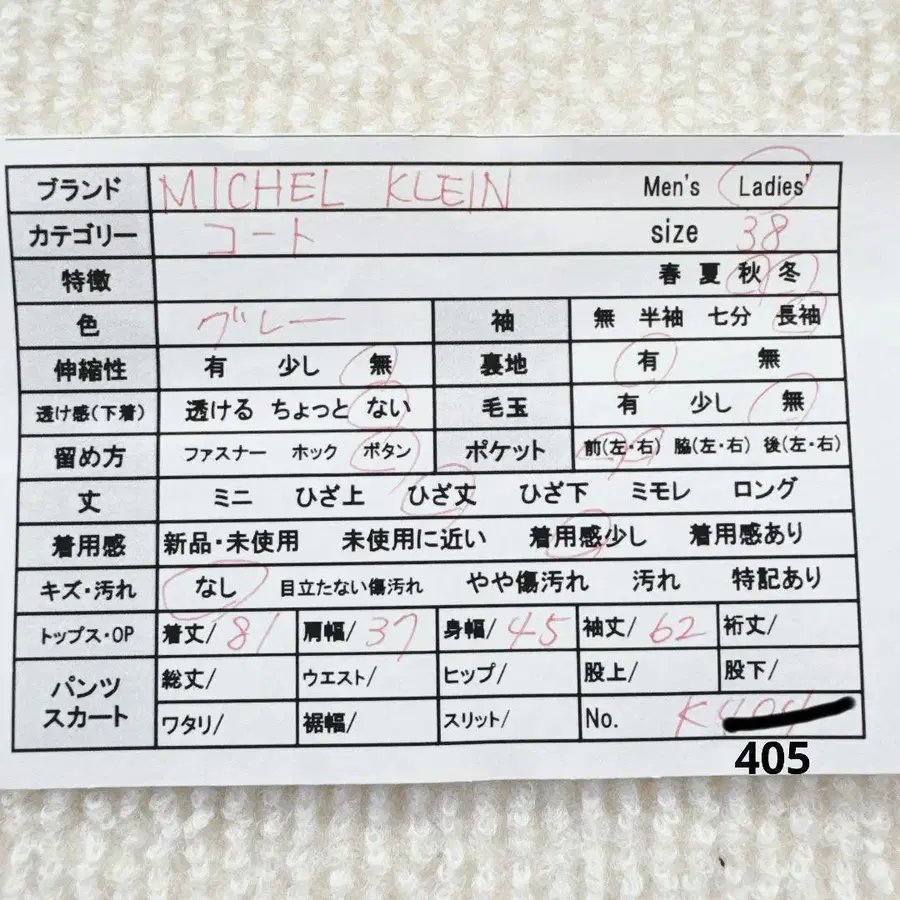 ブランド MICHEL KLEIN Men's Ladies'
カテゴリー コート size 38
特徴 春 夏 秋 冬
色 グレー 袖 無 半袖 七分 長袖
伸縮性 有 少し 無 裏地 有 無
透け感(下着) 透ける ちょっと ない 毛玉 有 少し 無
留め方 ファスナー ホック ボタン ポケット 前(左・右) 脇(左・右) 後(左・右)
丈 ミニ ひざ上 ひざ丈 ひざ下 ミモレ ロング
着用感 新品・未使用 未使用に近い 着用感少し 着用感あり
キズ・汚れ なし 目立たない傷汚れ やや傷汚れ 汚れ 特記あり
トップス・OP 着丈/ 81 肩幅/ 37 身幅/ 45 袖丈/ 62 裄丈/
パンツ スカート 総丈/ ウエスト/ ヒップ/ 股上/ 股下/
ワタリ/ 裾幅/ スリット/ No. K
405